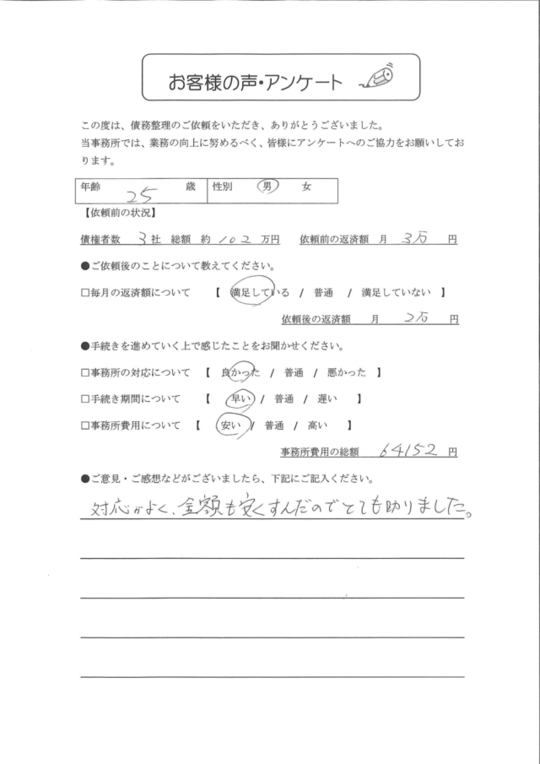 お客様の声・アンケート
この度は、債務整理のご依頼をいただき、ありがとうございました。
当事務所では、業務の向上に努めるべく、皆様にアンケートへのご協力をお願いしてお
ります。
年齢 25 歳 性別 男 女
【依頼前の状況】
債権者数 3 社 総額 約 102 万円 依頼前の返済額 月 3万 円
●ご依頼後のことについて教えてください。
□毎月の返済額について 【 満足している / 普通 / 満足していない 】
依頼後の返済額 月 2万 円
●手続きを進めていく上で感じたことをお聞かせください。
□事務所の対応について 【 良かった / 普通 / 悪かった 】
□手続き期間について 【 早い / 普通 / 遅い 】
□事務所費用について 【 安い / 普通 / 高い 】
事務所費用の総額 64152 円
●ご意見・ご感想などがございましたら、下記にご記入ください。
対応がよく、金額も安くすんだのでとても助りました。